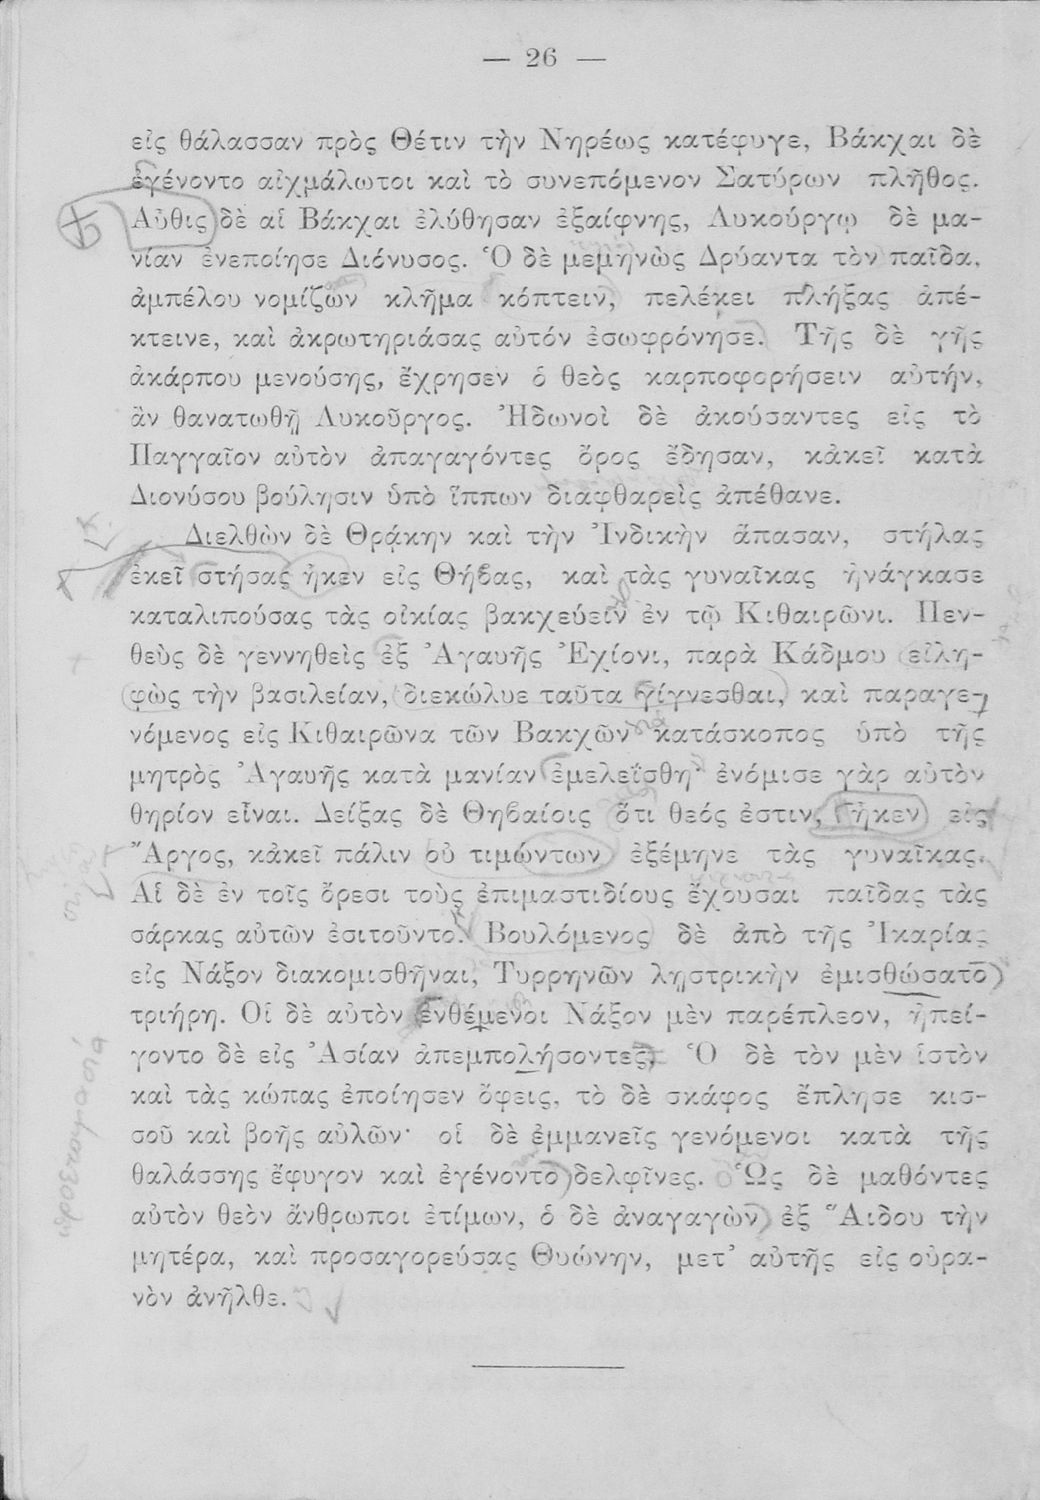 — 26 —
εἰς θάλασσαν πρὸς Θέτιν τὴν Νηρέως κατέφυγε, Βάκχαι δὲ
ἐγένοντο αἰχμάλωτοι καὶ τὸ συνεπόμενον Σατύρων πλῆθος.
Αὖθις δὲ αἱ Βάκχαι ἐλύθησαν ἐξαίφνης, Λυκούργῳ δὲ μα-
νίαν ἐνεποίησε Διόνυσος. Ὁ δὲ μεμηνὼς Δρύαντα τὸν παῖδα,
ἀμπέλου νομίζων κλῆμα κόπτειν, πελέκει πλήξας ἀπέ-
κτεινε, καὶ ἀκρωτηριάσας αὐτόν ἐσωφρόνησε. Τῆς δὲ γῆς
ἀκάρπου μενούσης, ἔχρησεν ὁ θεὸς καρποφορήσειν αὐτήν,
ἂν θανατωθῇ Λυκοῦργος. Ἠδωνοὶ δὲ ἀκούσαντες εἰς τὸ
Παγγαῖον αὐτὸν ἀπαγαγόντες ὄρος ἔδησαν, κἀκεῖ κατὰ
Διονύσου βούλησιν ὑπὸ ἵππων διαφθαρεὶς ἀπέθανε.
Διελθὼν δὲ Θρᾴκην καὶ τὴν Ἰνδικὴν ἅπασαν, στήλας
ἐκεῖ στήσας ἧκεν εἰς Θήβας, καὶ τὰς γυναῖκας ἠνάγκασε
καταλιπούσας τὰς οἰκίας βακχεύειν ἐν τῷ Κιθαιρῶνι. Πεν-
θεὺς δὲ γεννηθεὶς ἐξ Ἀγαυῆς Ἐχίονι, παρὰ Κάδμου εἰλη-
φὼς τὴν βασιλείαν, διεκώλυε ταῦτα γίγνεσθαι, καὶ παραγε-
νόμενος εἰς Κιθαιρῶνα τῶν Βακχῶν κατάσκοπος ὑπὸ τῆς
μητρὸς Ἀγαυῆς κατὰ μανίαν ἐμελεΐσθη· ἐνόμισε γὰρ αὐτὸν
θηρίον εἶναι. Δείξας δὲ Θηβαίοις ὅτι θεός ἐστιν, ἧκεν εἰς
Ἄργος, κἀκεῖ πάλιν οὐ τιμώντων ἐξέμηνε τὰς γυναῖκας.
Αἱ δὲ ἐν τοῖς ὄρεσι τοὺς ἐπιμαστιδίους ἔχουσαι παῖδας τὰς
σάρκας αὐτῶν ἐσιτοῦντο. Βουλόμενος δὲ ἀπὸ τῆς Ἰκαρίας
εἰς Νάξον διακομισθῆναι, Τυρρηνῶν λῃστρικὴν ἐμισθώσατο
τριήρη. Οἱ δὲ αὐτὸν ἐνθέμενοι Νάξον μὲν παρέπλεον, ἠπεί-
γοντο δὲ εἰς Ἀσίαν ἀπεμπολήσοντες. Ὁ δὲ τὸν μὲν ἱστὸν
καὶ τὰς κώπας ἐποίησεν ὄφεις, τὸ δὲ σκάφος ἔπλησε κισ-
σοῦ καὶ βοῆς αὐλῶν· οἱ δὲ ἐμμανεῖς γενόμενοι κατὰ τῆς
θαλάσσης ἔφυγον καὶ ἐγένοντο δελφῖνες. Ὡς δὲ μαθόντες
αὐτὸν θεὸν ἄνθρωποι ἐτίμων, ὁ δὲ ἀναγαγὼν ἐξ Ἅιδου τὴν
μητέρα, καὶ προσαγορεύσας Θυώνην, μετ' αὐτῆς εἰς οὐρα-
νὸν ἀνῆλθε.